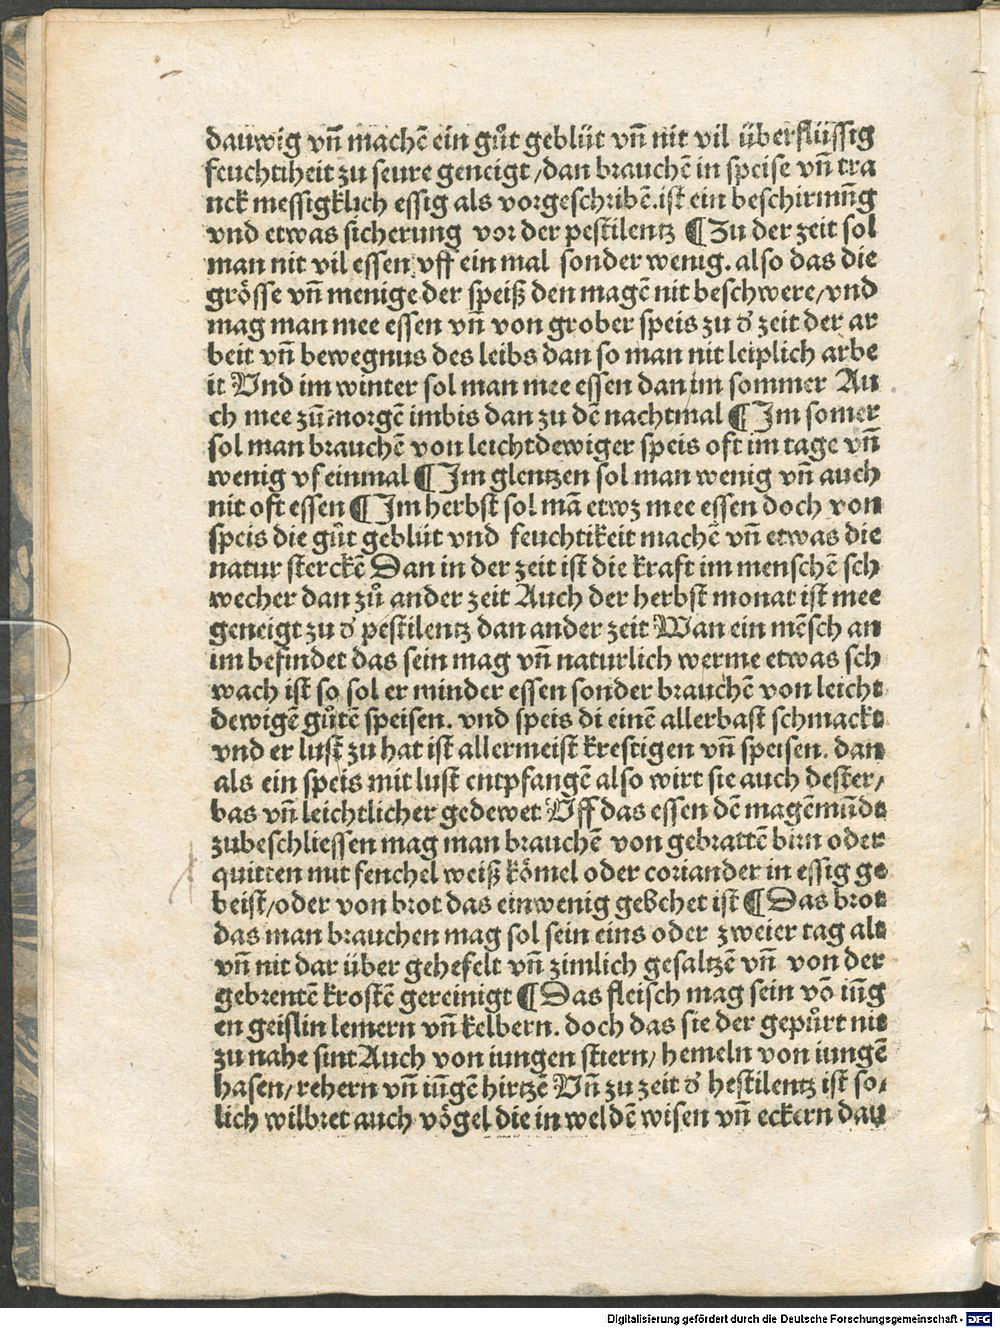 dauwig vn̄ machē ein gůt geblüt vn̄ nit vil überflüssig
feuchtiheit zu seure geneigt /dan brauchē in speise vn̄ tra
nck messigklich essig als vorgeschribē.ist ein beschirmūg
vnd etwas sicherung vor der pestilentz ¶ Zu der zeit sol
man nit vil essen vff ein mal sonder wenig. also das die
grösse vn̄ menige der speiß den magē nit beschwere/vnd
mag man mee essen vn̄ von grober speis zu d̕ zeit der ar
beit vn̄ bewegnus des leibs dan so man nit leiplich arbe
it Vnd im winter sol man mee essen dan im sommer Au
ch mee zū morgē imbis dan zu dē nachtmal ¶ Im somer
sol man brauchē von leichtdewiger speis oft im tage vn̄
wenig vf einmal ¶ Im glentzen sol man wenig vn̄ auch
nit oft essen ¶ Im herbst sol mā etwz mee essen doch von
speis die gůt geblüt vnd feuchtikeit machē vn̄ etwas die
natur sterckē Dan in der zeit ist die kraft im menschē sch
wecher dan zů ander zeit Auch der herbst monat ist mee
geneigt zu d̕ pestilentz dan ander zeit Wan ein mēsch an
im befindet das sein mag vn̄ naturlich werme etwas sch
wach ist so sol er minder essen sonder brauchē von leicht
dewigē gůtē speisen. vnd speis di einē allerbast schmackt
vnd er lust zu hat ist allermeist krestigen vn̄ speisen. dan
als ein speis mit lust entpfangē also wirt sie auch dester/
bas vn̄ leichtlicher gedewet Vff das essen dē magēmūde
zubeschliessen mag man brauchē von gebrattē birn oder
quitten mit fenchel weiß kömel oder coriander in essig ge
beist/oder von brot das einwenig gebehet ist ¶ Das brot
das man brauchen mag sol sein eins oder zweier tag alt
vn̄ nit dar über gehefelt vn̄ zimlich gesaltzē vn̄ von der
gebrentē krostē gereinigt ¶ Das fleisch mag sein vō iūg
en geislin lemern vn̄ kelbern. doch das sie der gepůrt nit
zu nahe sint Auch von iungen stiern/ hemeln von iungē
hasen/ rehern vn̄ iūgē hirtzē Vn̄ zu zeit d̕ hestilentz ist so/
lich wilbret auch vögel die in weldē wisen vn̄ eckern dau
Digitalisierung gefördert durch die Deutsche Forschungsgemeinschaft - DFG